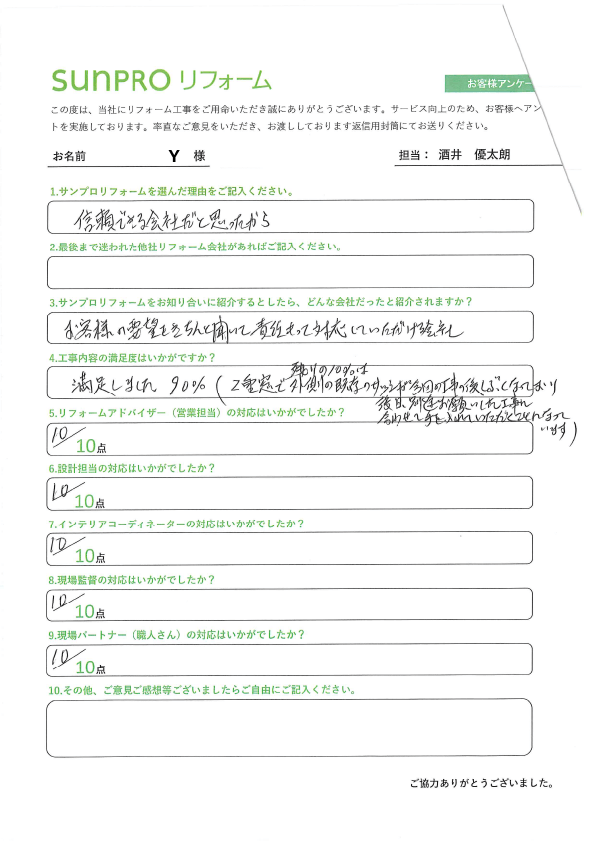 sunPRO リフォーム
お客様アンケー
この度は、当社にリフォーム工事をご用命いただき誠にありがとうございます。サービス向上のため、お客様へアン
トを実施しております。率直なご意見をいただき、お渡ししております返信用封筒にてお送りください。
お名前 Y 様 担当： 酒井 優太朗
1.サンプロリフォームを選んだ理由をご記入ください。
信頼できる会社だと思ったから
2.最後まで迷われた他社リフォーム会社があればご記入ください。
3.サンプロリフォームをお知り合いに紹介するとしたら、どんな会社だったと紹介されますか？
お客様の要望をきちんと聞いて責任もって対応していただける会社
4.工事内容の満足度はいかがですか？
残りの10%は
満足しました 90% (2重窓で外側の既存のサッシが今回の工事の後しぶくなってしまい
後日、別途お願いした工事に
合わせて手を入れていただくことになって
います)
5.リフォームアドバイザー（営業担当）の対応はいかがでしたか？
10/10点
6.設計担当の対応はいかがでしたか？
10/10点
7.インテリアコーディネーターの対応はいかがでしたか？
10/10点
8.現場監督の対応はいかがでしたか？
10/10点
9.現場パートナー（職人さん）の対応はいかがでしたか？
10/10点
10.その他、ご意見ご感想等ございましたらご自由にご記入ください。
ご協力ありがとうございました。